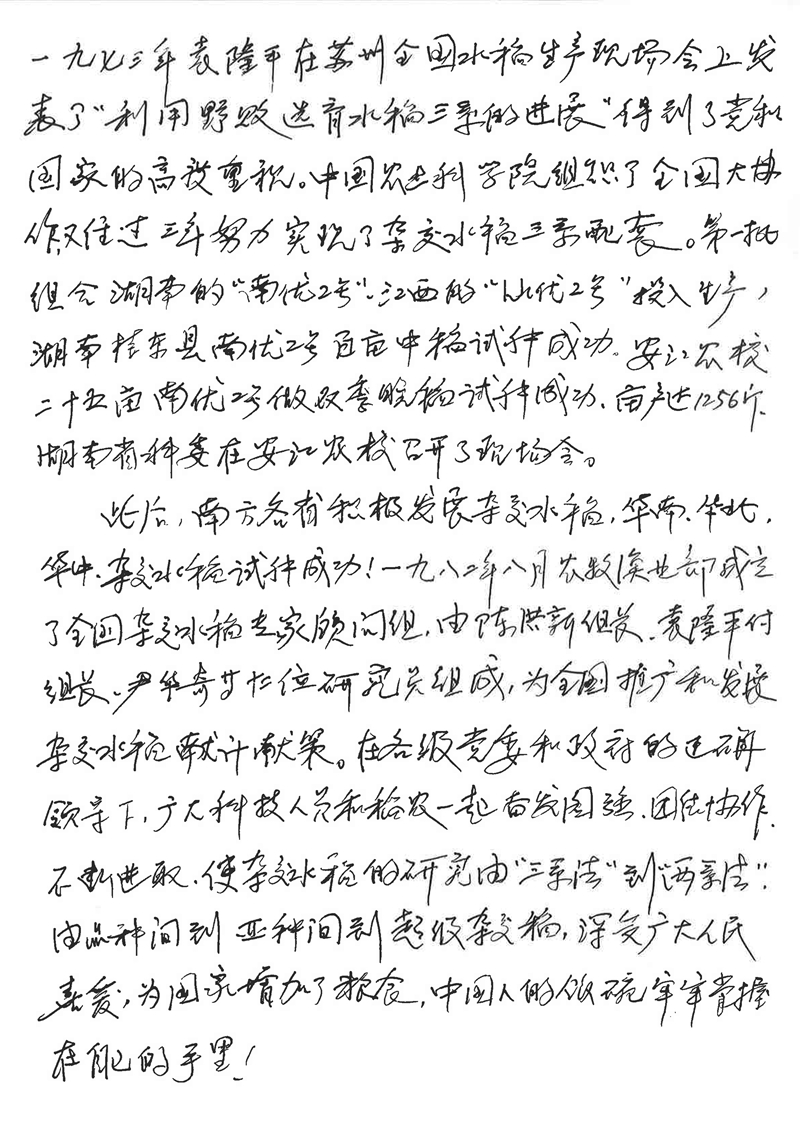 一九七三年袁隆平在苏州全国水稻生产现场会上发
表了“利用野败选育水稻三系的进展”得到了党和
国家的高度重视。中国农业科学院组织了全国大协
作又经过三年努力实现了杂交水稻三系配套。第一批
组合湖南的“南优2号”、江西的“汕优2号”投入生产,
湖南桂东县南优2号百亩中稻试种成功。安江农校
二十五亩南优2号做双季晚稻试种成功、亩产达1256斤、
湖南省科委在安江农校召开了现场会。
此后,南方各省积极发展杂交水稻,华南、华北,
华中、杂交水稻试种成功!一九八二年八月农牧渔业部成立
了全国杂交水稻专家顾问组,由陈洪新组长、袁隆平付
组长、尹华奇等十位研究员组成,为全国推广和发展
杂交水稻献计献策。在各级党委和政府的正确
领导下,广大科技人员和稻农一起奋发图强、团结协作、
不断进取、使杂交水稻的研究由“三系法”到“两系法”、
由品种间到亚种间到超级杂交稻,深受广大人民
喜爱,为国家增加了粮食,中国人的饭碗牢牢掌握
在自己的手里!